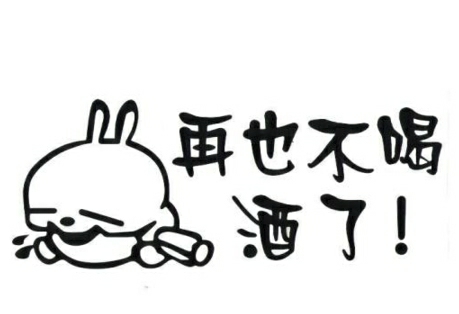 再也不喝
酒了！